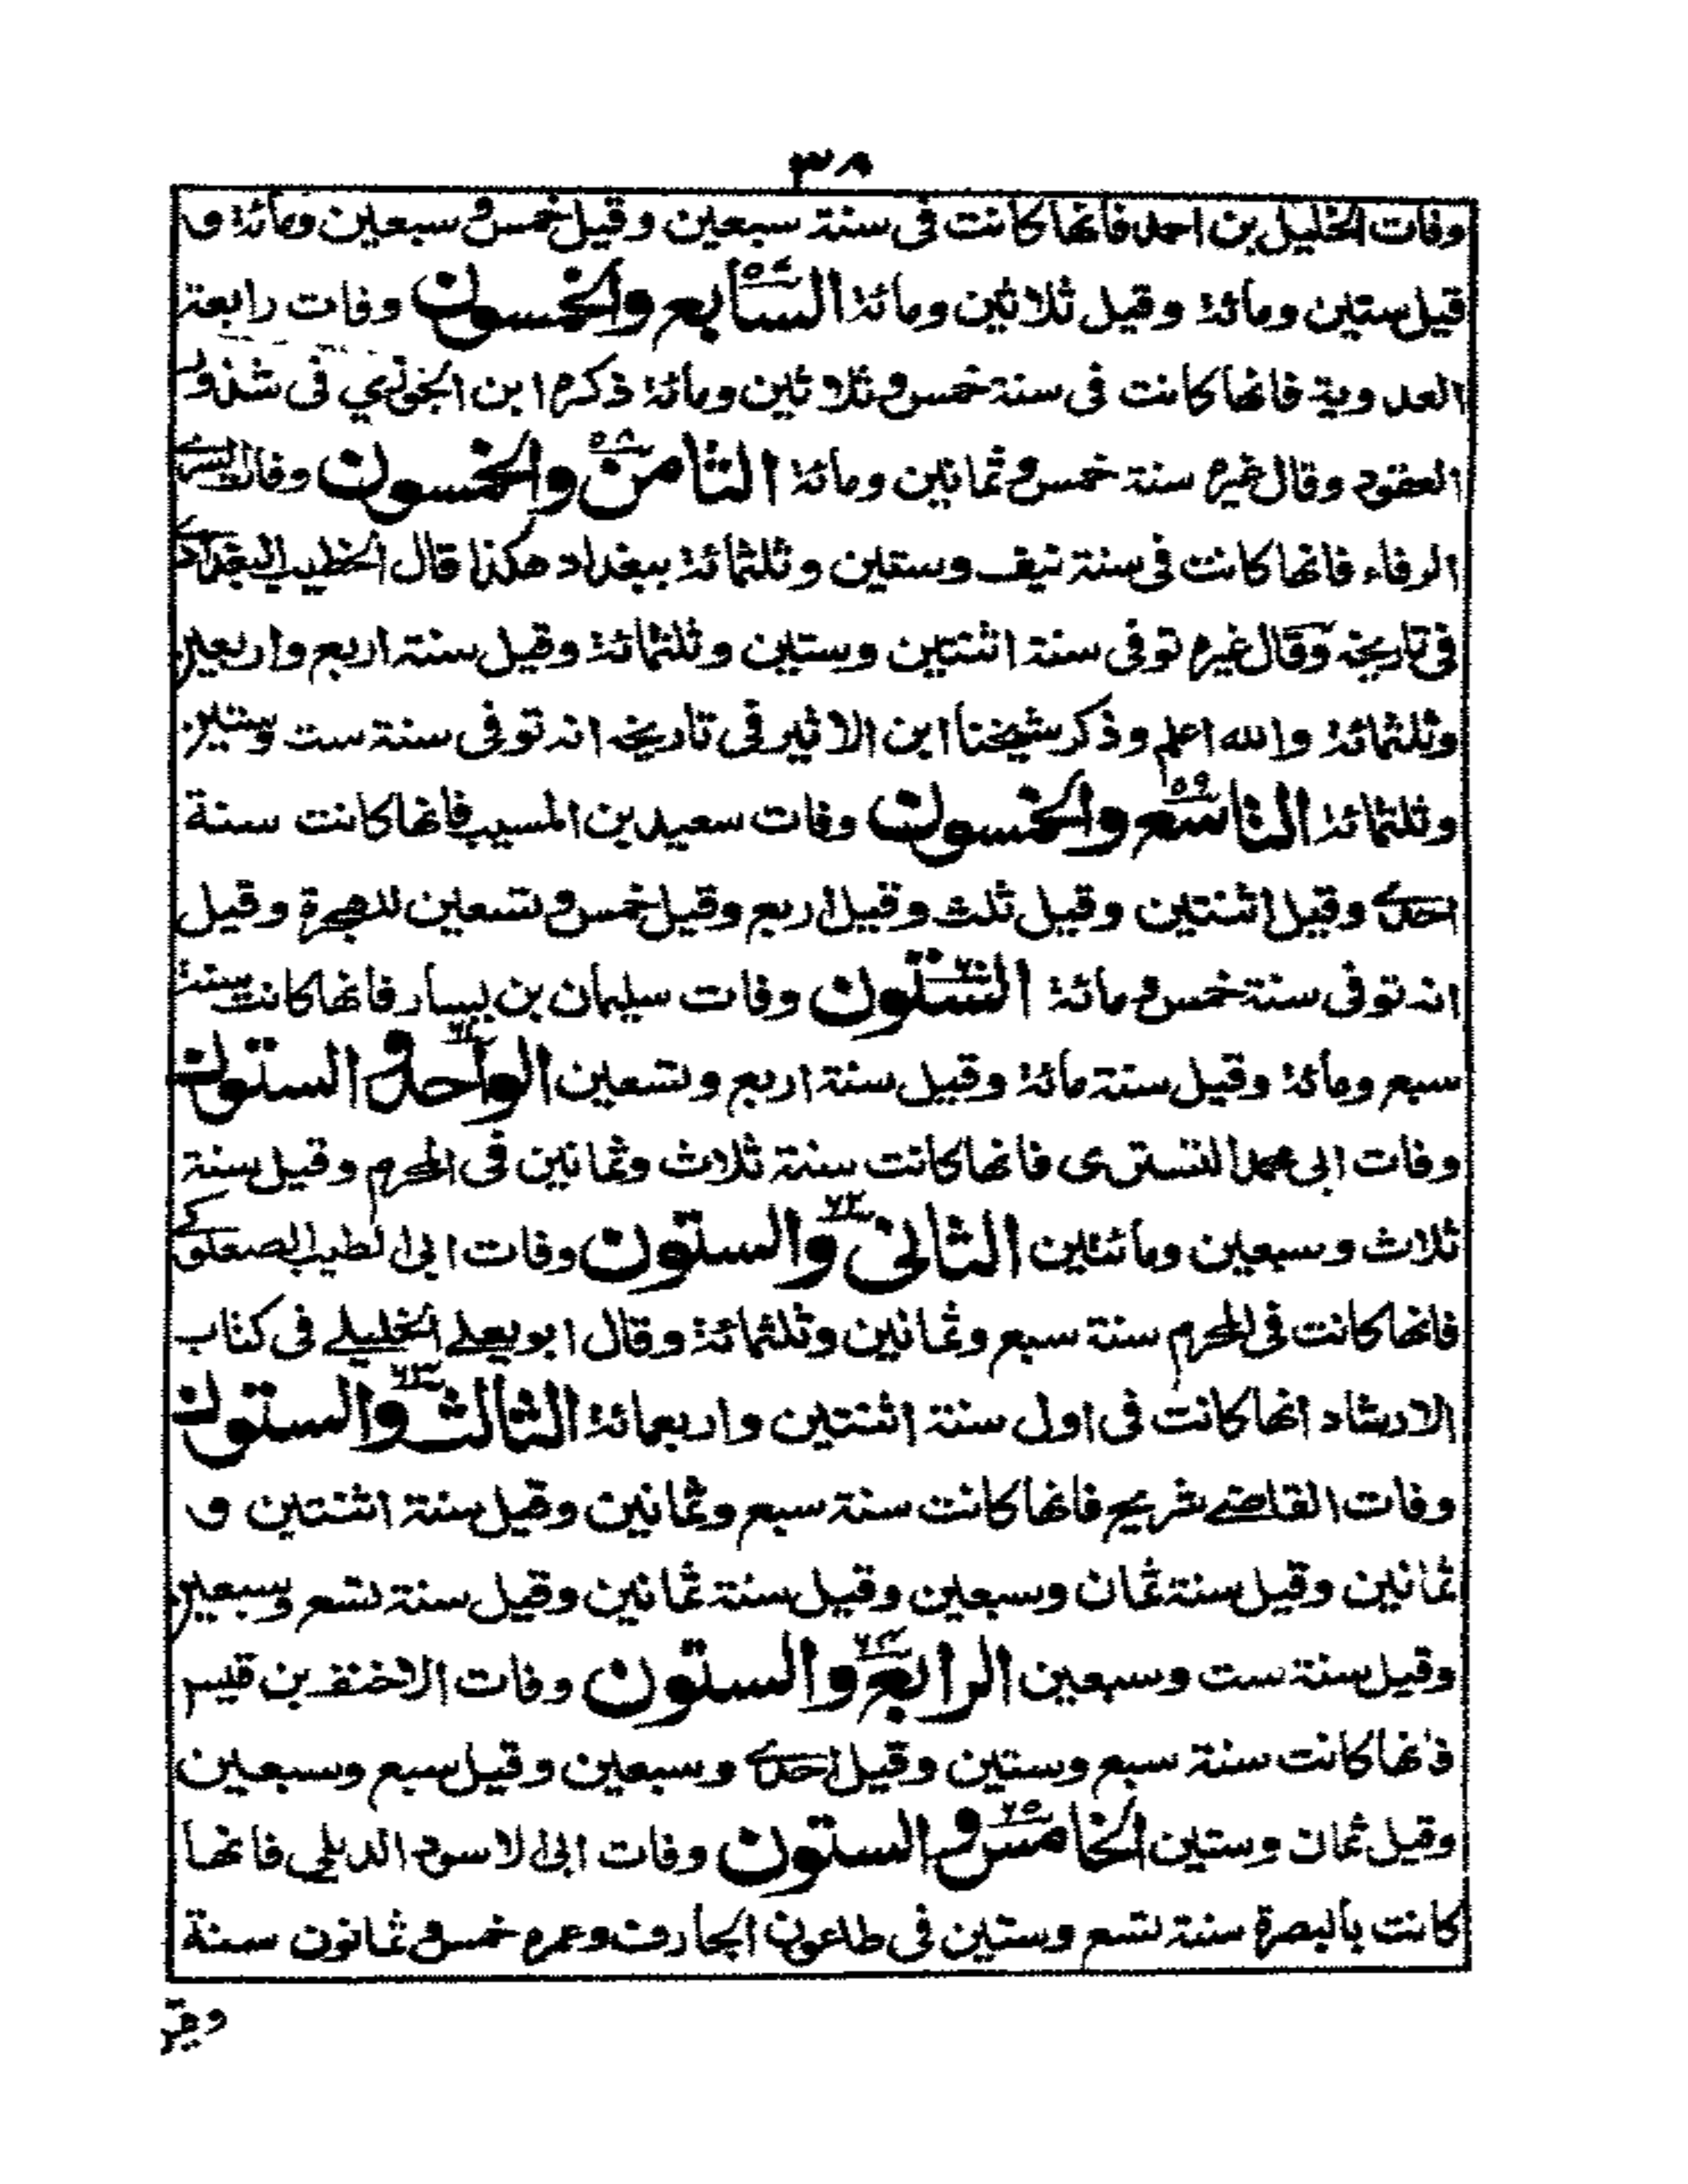 ٣٨
وفات الخليل بن احمد فانها كانت فى سنة سبعين وقيل خمس و سبعين ومائة و
قيل ستين ومائة وقيل ثلاثين ومائة السابع والخمسون ٥٧ وفات رابعة
العدوية فانها كانت فى سنة خمس و ثلاثين ومائة ذكره ابن الجوزي فى شذور
العقود وقال غيره سنة خمس و ثمانين ومائة الثامن والخمسون ٥٨ وفات السرى
الرفاء فانها كانت فى سنة نيف وستين وثلثمائة ببغداد هكذا قال الخطيب البغدادى
فى تاريخه وقال غيره توفى سنة اثنتين وستين وثلثمائة وقيل سنة اربع واربعين
وثلثمائة والله اعلم وذكر شيخنا ابن الاثير فى تاريخه انه توفى سنة ست وستين
وثلثمائة التاسع والخمسون ٥٩ وفات سعيد بن المسيب فانها كانت سنة
احدى وقيل اثنتين وقيل ثلث وقيل اربع وقيل خمس و تسعين للهجرة وقيل
انه توفى سنة خمس و مائة الستون ٦٠ وفات سليمان بن يسار فانها كانت سنة
سبع ومائة وقيل سنة مائة وقيل سنة اربع وتسعين الواحد و الستون ٦١
وفات ابى محمد التسترى فانها كانت سنة ثلاث وثمانين فى المحرم وقيل سنة
ثلاث وسبعين ومائتين الثانى والستون ٦٢ وفات ابى الطيب الصعلوكى
فانها كانت فى المحرم سنة سبع وثمانين وثلثمائة وقال ابو يعلى الخليلى فى كتاب
الارشاد انها كانت فى اول سنة اثنتين واربعمائة الثالث والستون ٦٣
وفات القاضى شريح فانها كانت سنة سبع وثمانين وقيل سنة اثنتين و
ثمانين وقيل سنة ثمان وسبعين وقيل سنة ثمانين وقيل سنة تسع وسبعين
وقيل سنة ست وسبعين الرابع والستون ٦٤ وفات الاحنف بن قيس
فانها كانت سنة سبع وستين وقيل احدى وسبعين وقيل سبع وسبعين
وقيل ثمان وستين الخامس و الستون ٦٥ وفات ابى الاسود الديلى فانها
كانت بالبصرة سنة تسع وستين فى طاعون الجارف وعمره خمس و ثمانون سنة
وقير